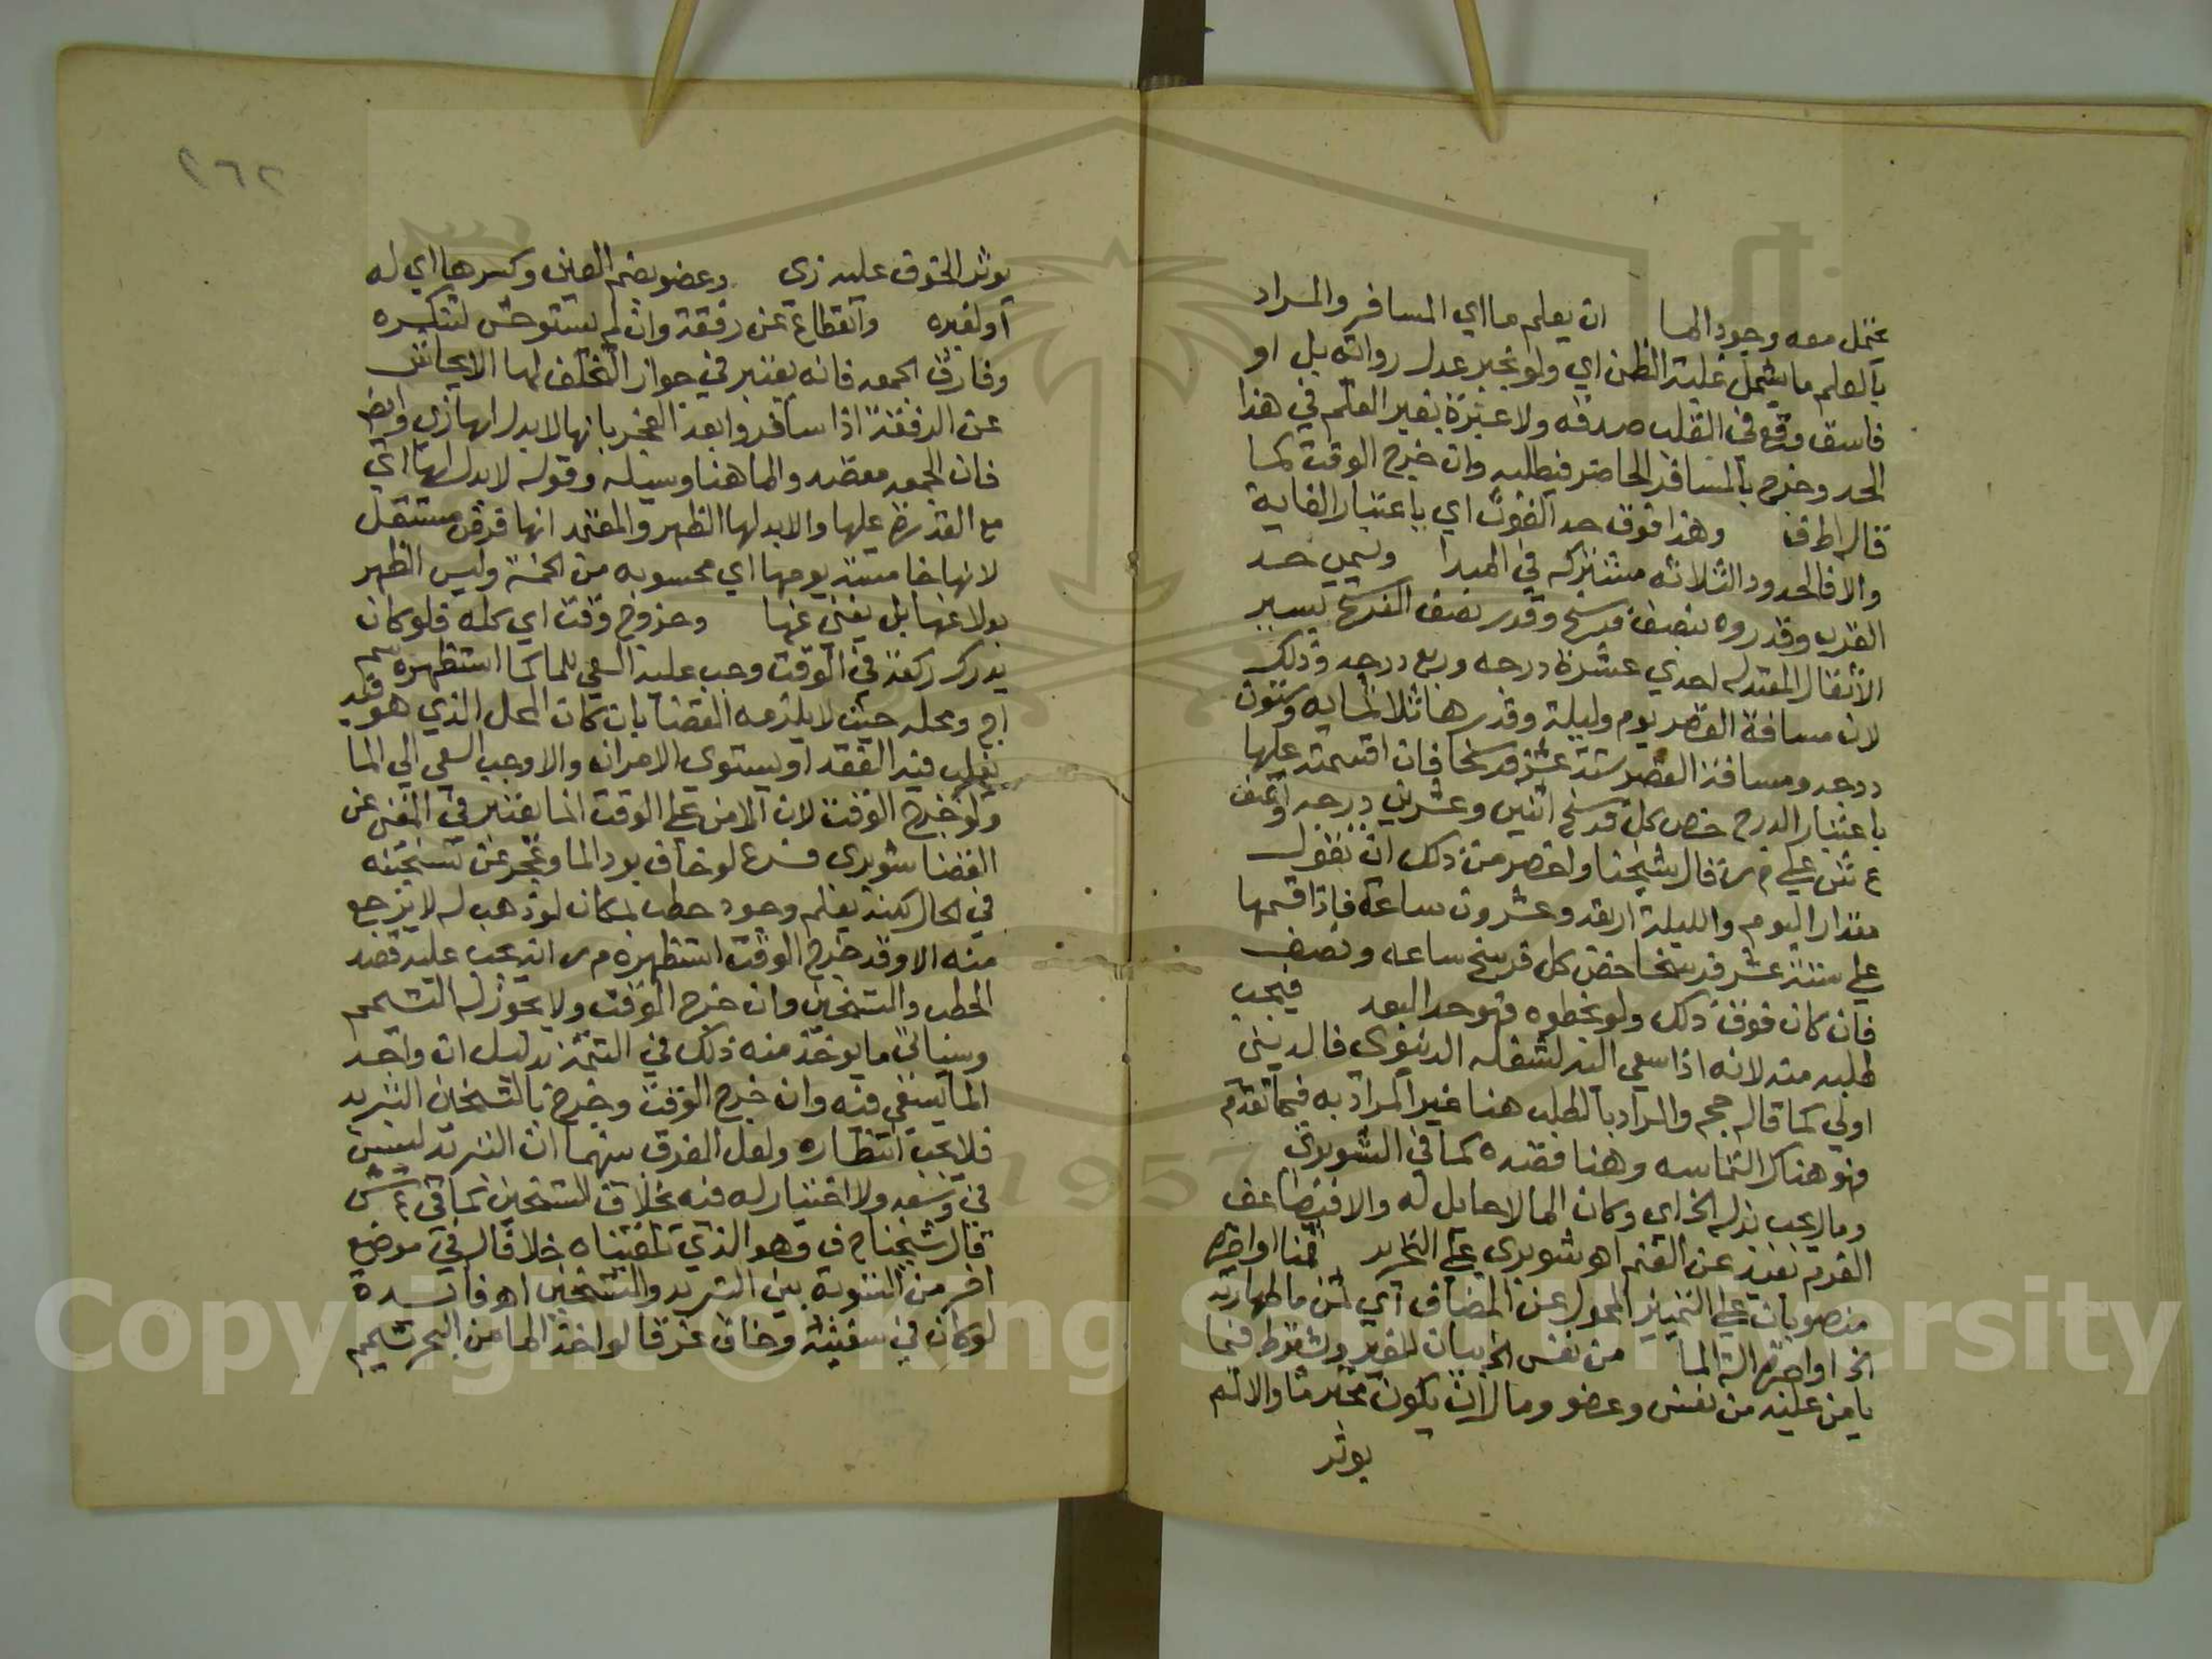 يحتمل معه وجود الما ان يعلم ما اي المسافر والمراد
بالعلم ما يشمل غلبة الظن اي ولو بخبر عدل رواته بل او
فاسق وقع في القلب صدقه ولا عبرة بغير العلم في هذا
الحد وخرج بالمسافر الحاضر فيطلبه وان خرج الوقت كما
قاله وهذا فوق حد الغوث اي باعتبار الغاية
والا فالحدود الثلاثه مشتركه في المبدا ويسمى حد
القرب وقدروه بنصف فرسخ وقدر نصف الفرسخ بسير
الاثقال المعتدله احدي عشرة درجه وربع درجه وذلك
لان مسافة القصر يوم وليلة وقدرها ثلاثمايه وستون
درجه ومسافة القصر ستة عشر فرسخا فان اقتسمته عليها
باعتبار الدرج خص كل فرسخ اثنين وعشرين درجه ونصف
ع ش علي م ر قال شيخنا واخصر من ذلك ان تقول
مقدار اليوم والليلة اربعه وعشرون ساعة فاذا قسمها
علي ستة عشر فرسخا خص كل فرسخ ساعه ونصف
فان كان فوق ذلك ولو بخطوه فهو حد البعد فيجب
طلبه منه لانه اذا سعي اليه لشغله الدنيوي فالديني
اولي كما قاله حجر والمراد بالطلب هنا غير المراد به فيما تقدم
فهو هناك التماسه وهنا قصده كما في الشوبري
ومال يجب بذله الخ اي وكان الما لا حايل له والا
القرم نفيد عن القتم اه شوبري علي التحرير ثمنا او اجرة
منصوبان علي التمييز المحول عن المضاف اي ثمن ما طهارته
الخ او اجرة الة الما من نفس الخ بيان للغير ويشترط فيما
يامن عليه من نفس وعضو ومال ان يكون محترما والا لم
يوثر
٢٦٢
يوثر الخوف عليه زي وعضو بضم العين وكسرها اي له
او لغيره وانقطاع عن رفقة وان لم يستوحش لتنكيره
وفارق الجمعه فانه يعتبر في جواز التخلف لها الايحاش
عن الرفقة اذا سافروا بعد الفجر بانها لا بدل لها زي وايضا
فان الجمعه مقصد والما هنا وسيله وقوله لا بدل لها اي
مع القدرة عليها والا بدلها الظهر والمعتمد انها فرض مستقل
لانها خامسة يومها اي محسوبه من الخمسة وليس الظهر
بدلا عنها بل يغني عنها وخروج وقت اي كله فلو كان
يدرك ركعة في الوقت وجب عليه السعي للما كما استظهره سم
اج ومحله حيث لا يلزمه القضا بان كان المحل الذي هو فيه
يغلب فيه الفقد او يستوي الامران والا وجب السعي الي الما
ولو خرج الوقت لان الامن علي الوقت انما يعتبر في المغني عن
القضا شوبري فرع لو خاف برد الما وعجز عن تسخينه
في الحال لكنه يعلم وجود حطب بمكان لو ذهب له لا يرجع
منه الا وقد خرج الوقت استظهره م ر انه يجب عليه قصد
الحطب والتسخين وان خرج الوقت ولا يجوز له التيمم
وسياتي ما يوخذ منه ذلك في التتمة بدليل ان واجد
الما يسعي فيه وان خرج الوقت وخرج بالتسخين التبريد
فلا يجب انتظاره ولعل الفرق بينهما ان التبريد ليس
في وسعه ولا اختيار له فيه بخلاف التسخين كما في ع ش
قال شيخنا ح ف وهو الذي تلقيناه خلافا لـ في موضع
اخر من التسوية بين التبريد والتسخين اه فايدة
لو كان في سفينة وخاف غرقا لو اخذ الما من البحر تيمم